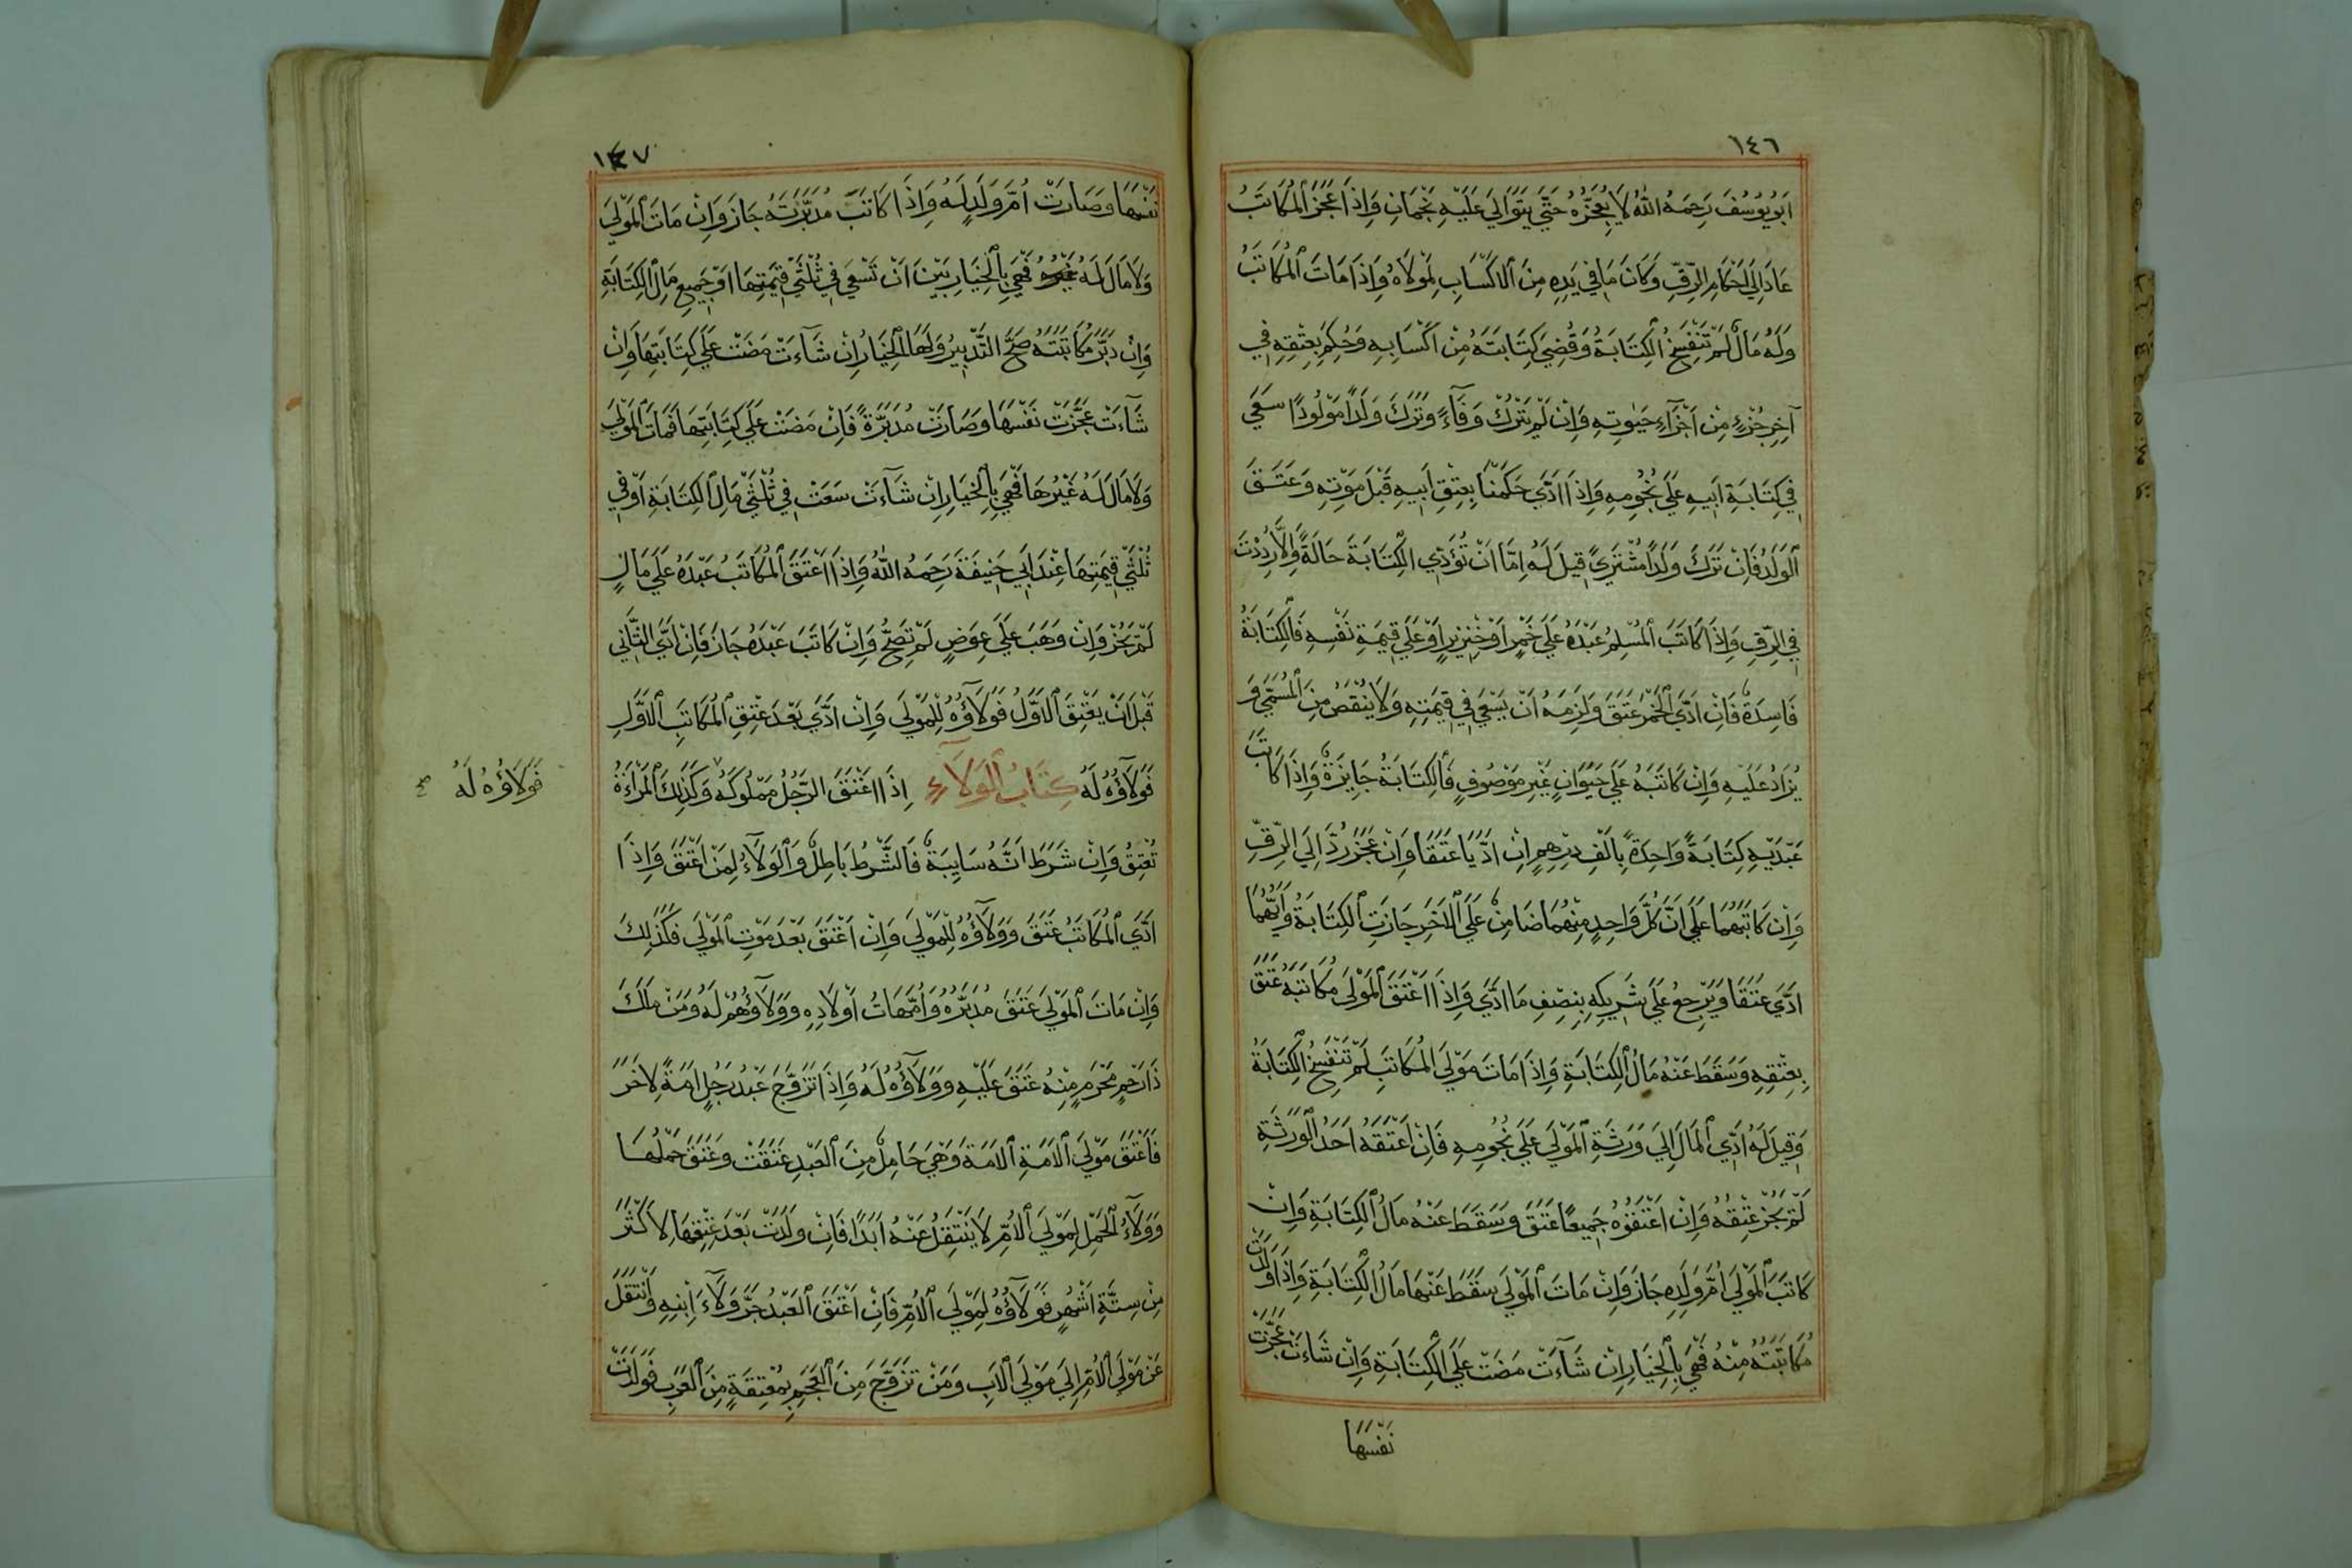 ١٤٦
اَبُو يُوسُفَ رَحِمَهُ اللهُ لَا يُعَجِّزُهُ حَتَّي يَتَوَالَيَ عَلَيْهِ نَجْمَانِ وَاِذَا عَجَزَ الْمُكَاتَبُ
عَادَ اِلَي اَحْكَامِ الرِّقِّ وَكَانَ مَا فِي يَدِهِ مِنَ الْاَكْسَابِ لِمَوْلَاهُ وَاِذَا مَاتَ الْمُكَاتَبُ
وَلَهُ مَالٌ لَمْ تَنْفَسِخِ الْكِتَابَةُ وَقُضِيَ كِتَابَتَهُ مِنْ اَكْسَابِهِ وَحُكِمَ بِعِتْقِهِ فِي
آخِرِ جُزْءٍ مِنْ اَجْزَآءِ حَيٰوتِهِ وَاِنْ لَمْ يَتْرُكْ وَفَآءً وَتَرَكَ وَلَدًا مَوْلُودًا سَعَي
فِي كِتَابَةِ اَبِيهِ عَلَي نُجُومِهِ وَاِذَا اَدَّي حَكَمْنَا بِعِتْقِ اَبِيهِ قَبْلَ مَوْتِهِ وَعَتَقَ
الْوَلَدُ فَاِنْ تَرَكَ وَلَدًا مُشْتَرَيً قِيلَ لَهُ اِمَّا اَنْ تُؤَدِّي الْكِتَابَةَ حَالَةً وَاِلَّا رُدِدْتَ
فِي الرِّقِ وَاِذَا كَاتَبَ الْمُسْلِمُ عَبْدَهُ عَلَي خَمْرٍ اَوْ خِنْزِيرٍ اَوْ عَلَي قِيمَةِ نَفْسِهِ فَالْكِتَابَةُ
فَاسِدَةٌ فَاِنْ اَدَّي الْخَمْرَ عَتَقَ وَلَزِمَهُ اَنْ يَسْعَي فِي قِيمَتِهِ وَلَا يَنْقُصُ مِنَ الْمُسَمَّي وَ
يُزَادُ عَلَيْهِ وَاِنْ كَاتَبَهُ عَلَي حَيَوَانٍ غَيْرِ مَوْصُوفٍ فَالْكِتَابَةُ جَايِزَةٌ وَاِذَا كَاتَبَ
عَبْدَيْهِ كِتَابَةً وَاحِدَةً بِاَلْفِ دِرْهَمٍ اِنْ اَدَّيَا عَتَقَا وَاِنْ عَجَزَ رُدَّ اِلَي الرِّقِّ
وَاِنْ كَاتَبَهُمَا عَلَي اَنَّ كُلَّ وَاحِدٍ مِنْهُمَا ضَامِنٌ عَلَي الْاٰخَرِ جَازَتِ الْكِتَابَةُ وَاَيُّهُمَا
اَدَّي عَتَقَا وَيَرْجِعُ عَلَي شَرِيكِهِ بِنِصْفِ مَا اَدَّي وَاِذَا اَعْتَقَ الْمَوْلَي مُكَاتَبَهُ عَتَقَ
بِعِتْقِهِ وَسَقَطَ عَنْهُ مَالُ الْكِتَابَةِ وَاِذَا مَاتَ مَوْلَي الْمُكَاتَبِ لَمْ تَنْفَسِخِ الْكِتَابَةُ
وَقِيلَ لَهُ اَدِّي الْمَالَ اِلَي وَرَثَةِ الْمَوْلَي عَلَي نُجُومِهِ فَاِنْ اَعْتَقَهُ اَحَدُ الْوَرَثَةِ
لَمْ يَجُزْ عِتْقُهُ وَاِنْ اَعْتَقُوهُ جَمِيعًا عَتَقَ وَسَقَطَ عَنْهُ مَالُ الْكِتَابَةِ وَاِنْ
كَاتَبَ الْمَوْلَي اُمَّ وَلَدِهِ جَازَ وَاِنْ مَاتَ الْمَوْلَي سَقَطَ عَنْهَا مَالُ الْكِتَابَةِ وَاِذَا وَلَدَتْ
مُكَاتَبَتُهُ مِنْهُ فَهِيَ بِالْخِيَارِ اِنْ شَآءَتْ مَضَتْ عَلَي الْكِتَابَةِ وَاِنْ شَاءَتْ عَجَّزَتْ
نَفْسَهَا
١٤٧
نَفْسَهَا وَصَارَتْ اُمَّ وَلَدٍ لَهُ وَاِذَا كَاتَبَ مُدَبَّرَتَهُ جَازَ وَاِنْ مَاتَ الْمَوْلَي
وَلَا مَالَ لَهُ غَيْرُهُ فَهِيَ بِالْخِيَارِ بَيْنَ اَنْ تَسْعَي فِي ثُلُثَيْ قِيمَتِهَا اَوْ جَمِيعِ مَالِ الْكِتَابَةِ
وَاِنْ دَبَّرَ مُكَاتَبَتَهُ صَحَّ التَّدْبِيرُ وَلَهَا الْخِيَارُ اِنْ شَآءَتْ مَضَتْ عَلَي كِتَابَتِهَا وَاِنْ
شَآءَتْ عَجَّزَتْ نَفْسَهَا وَصَارَتْ مُدَبَّرَةً فَاِنْ مَضَتْ عَلَي كِتَابَتِهَا فَمَاتَ الْمَوْلَي
وَلَا مَالَ لَهُ غَيْرُهَا فَهِيَ بِالْخِيَارِ اِنْ شَآءَتْ سَعَتْ فِي ثُلُثَيْ مَالِ الْكِتَابَةِ اَوْ فِي
ثُلُثَيْ قِيمَتِهَا عِنْدَ اَبِي حَنِيفَةَ رَحِمَهُ اللهُ وَاِذَا اَعْتَقَ الْمُكَاتَبُ عَبْدَهُ عَلَي مَالٍ
لَمْ يَجُزْ وَاِنْ وَهَبَ عَلَي عِوَضٍ لَمْ تَصَحَّ وَاِنْ كَاتَبَ عَبْدَهُ جَازَ فَاِنْ اَدَّي الثَّانِي
قَبْلَ اَنْ يَعْتِقَ الْاَوَّلُ فَوَلَآؤُهُ لِلْمَوْلَي وَاِنْ اَدَّي بَعْدَ عِتْقِ الْمُكَاتَبِ الْاَوَّلِ
فَوَلَآؤُهُ لَهُ كِتَابُ الْوَلَآءِ اِذَا اَعْتَقَ الرَّجُلُ مَمْلُوكَهُ وَكَذٰلِكَ الْمَرْاَةُ
فَوَلَاؤُهُ لَهُ صح
تُعْتِقُ وَاِنْ شَرَطَ اَنَّهُ سَايِبَةٌ فَالشَّرْطُ بَاطِلٌ وَالْوَلَآءُ لِمَنْ اَعْتَقَ وَاِذَا
اَدَّي الْمُكَاتَبُ عَتَقَ وَوَلَآؤُهُ لِلْمَوْلَي وَاِنْ اَعْتَقَ بَعْدَ مَوْتِ الْمَوْلَي فَكَذٰلِكَ
وَاِنْ مَاتَ الْمَوْلَي عَتَقَ مُدَبَّرُهُ وَاُمَّهَاتُ اَوْلَادِهِ وَوَلَآؤُهُمْ لَهُ وَمَنْ مَلَكَ
ذَا رَحِمٍ مَحْرَمٍ مِنْهُ عَتَقَ عَلَيْهِ وَوَلَآؤُهُ لَهُ وَاِذَا تَزَوَّجَ عَبْدُ رَجُلٍ اَمَةً لِاٰخَرَ
فَاَعْتَقَ مَوْلَي الْاَمَةِ الْاَمَةَ وَهِيَ حَامِلٌ مِنَ الْعَبْدِ عَتَقَتْ وَعَتَقَ حَمْلُهَا
وَوَلَآءُ الْحَمْلِ لِمَوْلَي الْاُمِّ لَا يَنْتَقِلُ عَنْهُ اَبَدًا فَاِنْ وَلَدَتْ بَعْدَ عِتْقِهَا لِاَكْثَرَ
مِنْ سِتَّةِ اَشْهُرٍ فَوَلَآؤُهُ لِمَوْلَي الْاُمِّ فَاِنْ اَعْتَقَ الْعَبْدُ جَرَّ وَلَآءَ اِبْنِهِ وَانْتَقَلَ
عَنْ مَوْلَي الْاُمِّ اِلَي مَوْلَي الْاَبِ وَمَنْ تَزَوَّجَ مِنَ الْعَجَمِ بِمُعْتَقَةٍ مِنَ الْعَرَبِ فَوَلَدَتْ